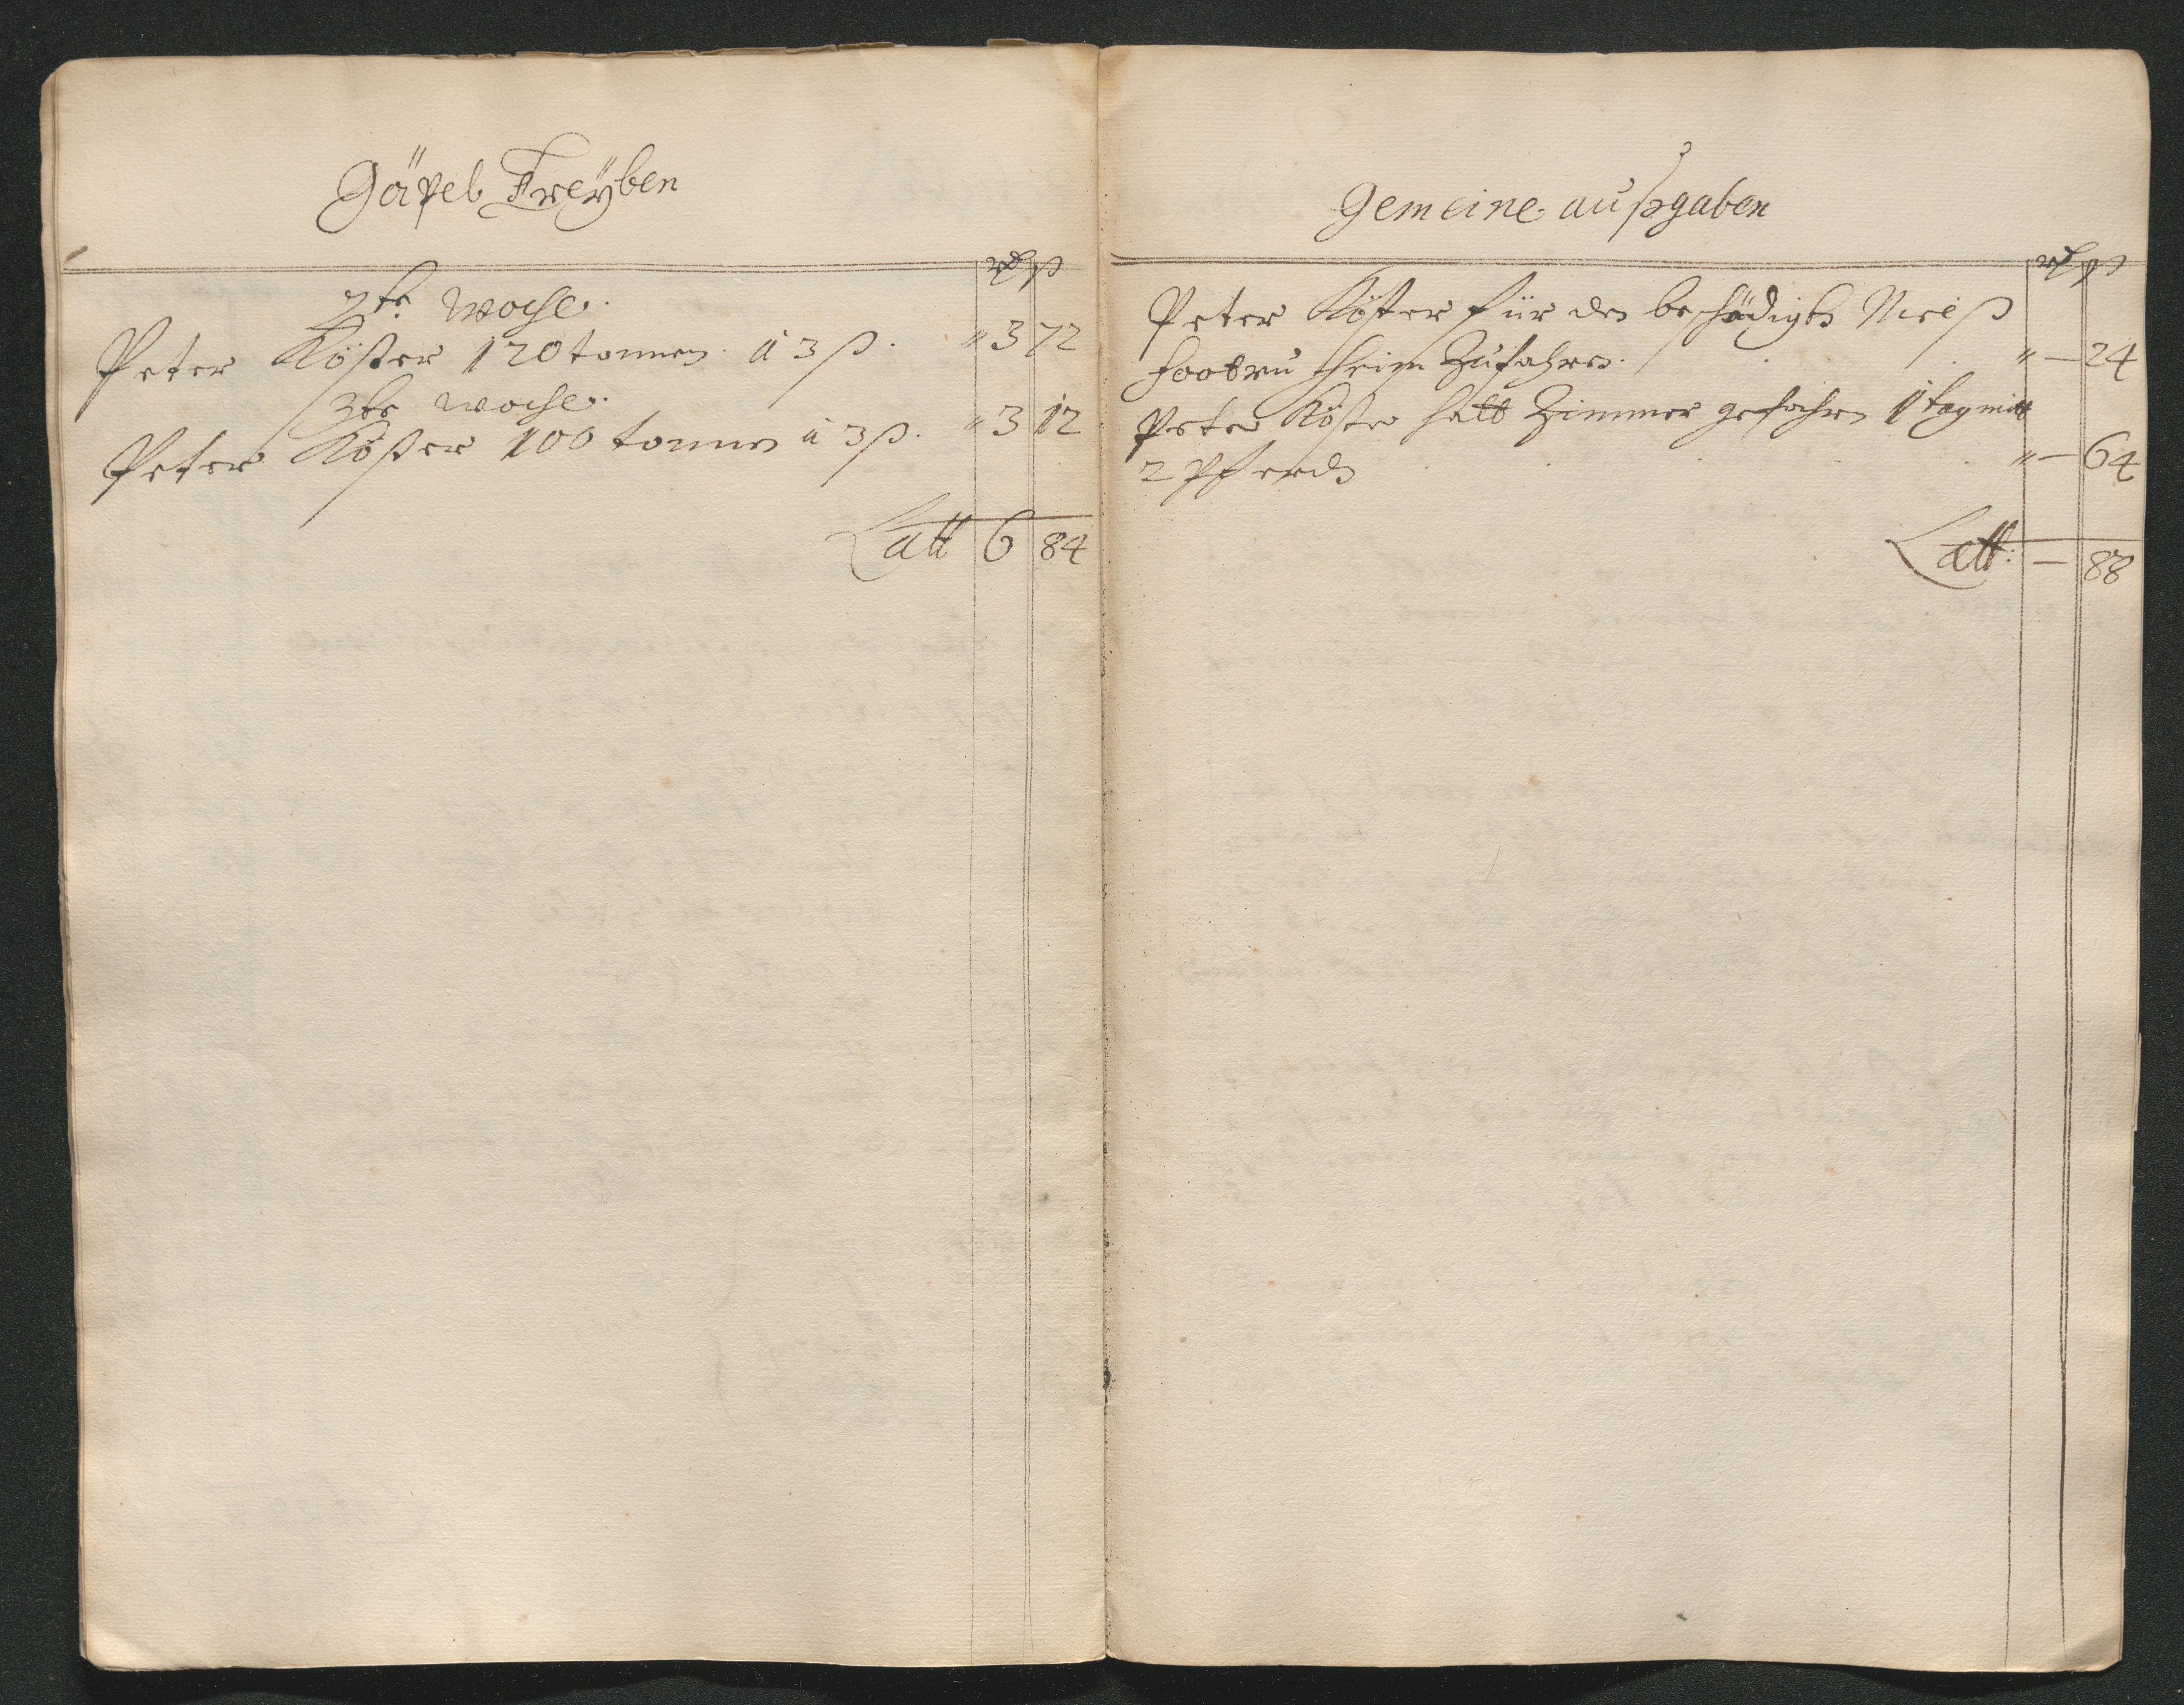 Göpel Treÿben
rd ß
2te woche.
Peter Köster 120 tonnen â 3 ß. " 3 72
3te woche.
Peter Köster 100 tonnen â 3 ß. " 3 12
Latt 6 84
Gemeine außgaben
rd ß
Peter Köster für den beschädigten Nielß
heim Zufahren. " — 24
Peter Köster hatt Zimmer gefahren 1 tag mitt
2 Pferden " — 64
Latt: — 88